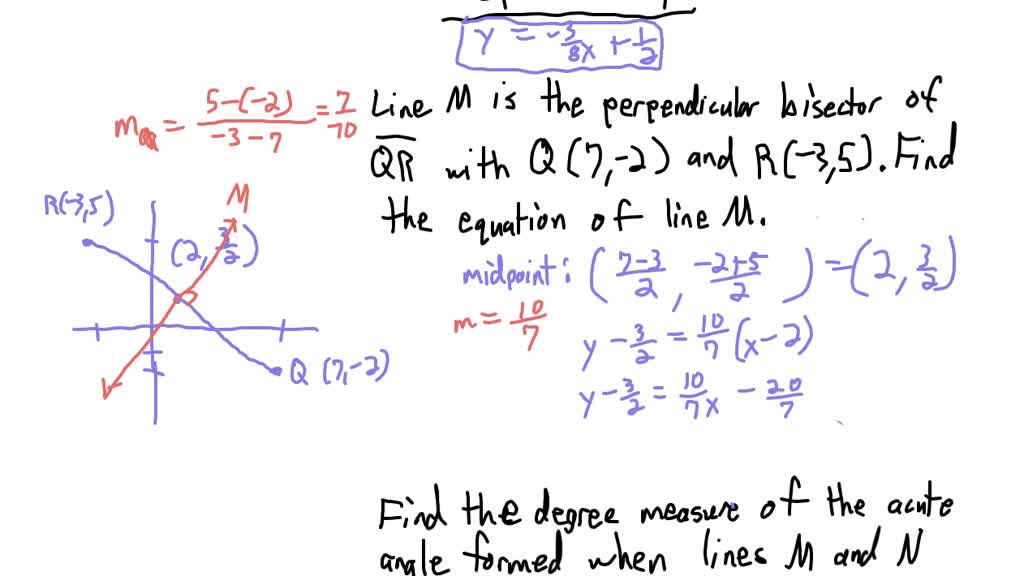 y = -3/8x + 1/2
m_QR = 5-(-2)/-3-7 = 7/-10
Line M is the perpendicular bisector of
QR with Q(7,-2) and R(-3,5). Find
the equation of line M.
R(-3,5)
M
(2, 3/2)
Q (7,-2)
midpoint: (7-3/2, -2+5/2) = (2, 3/2)
m = 10/7
y - 3/2 = 10/7(x-2)
y - 3/2 = 10/7x - 20/7
Find the degree measure of the acute
angle formed when lines M and N